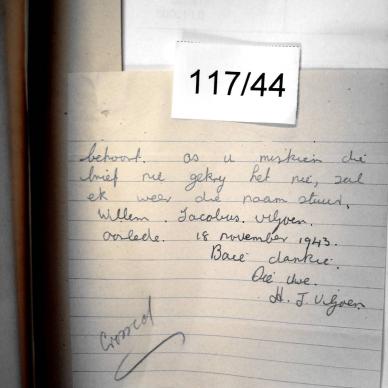 117/44
behoort. as u miskien die
brief nie gekry het nie, sal
ek weer die naam stuur,
Willem. Jacobus. Viljoen.
oorlede. 18 november 1943.
Baie dankie.
Die Uwe.
H. J. Viljoen
Crossed